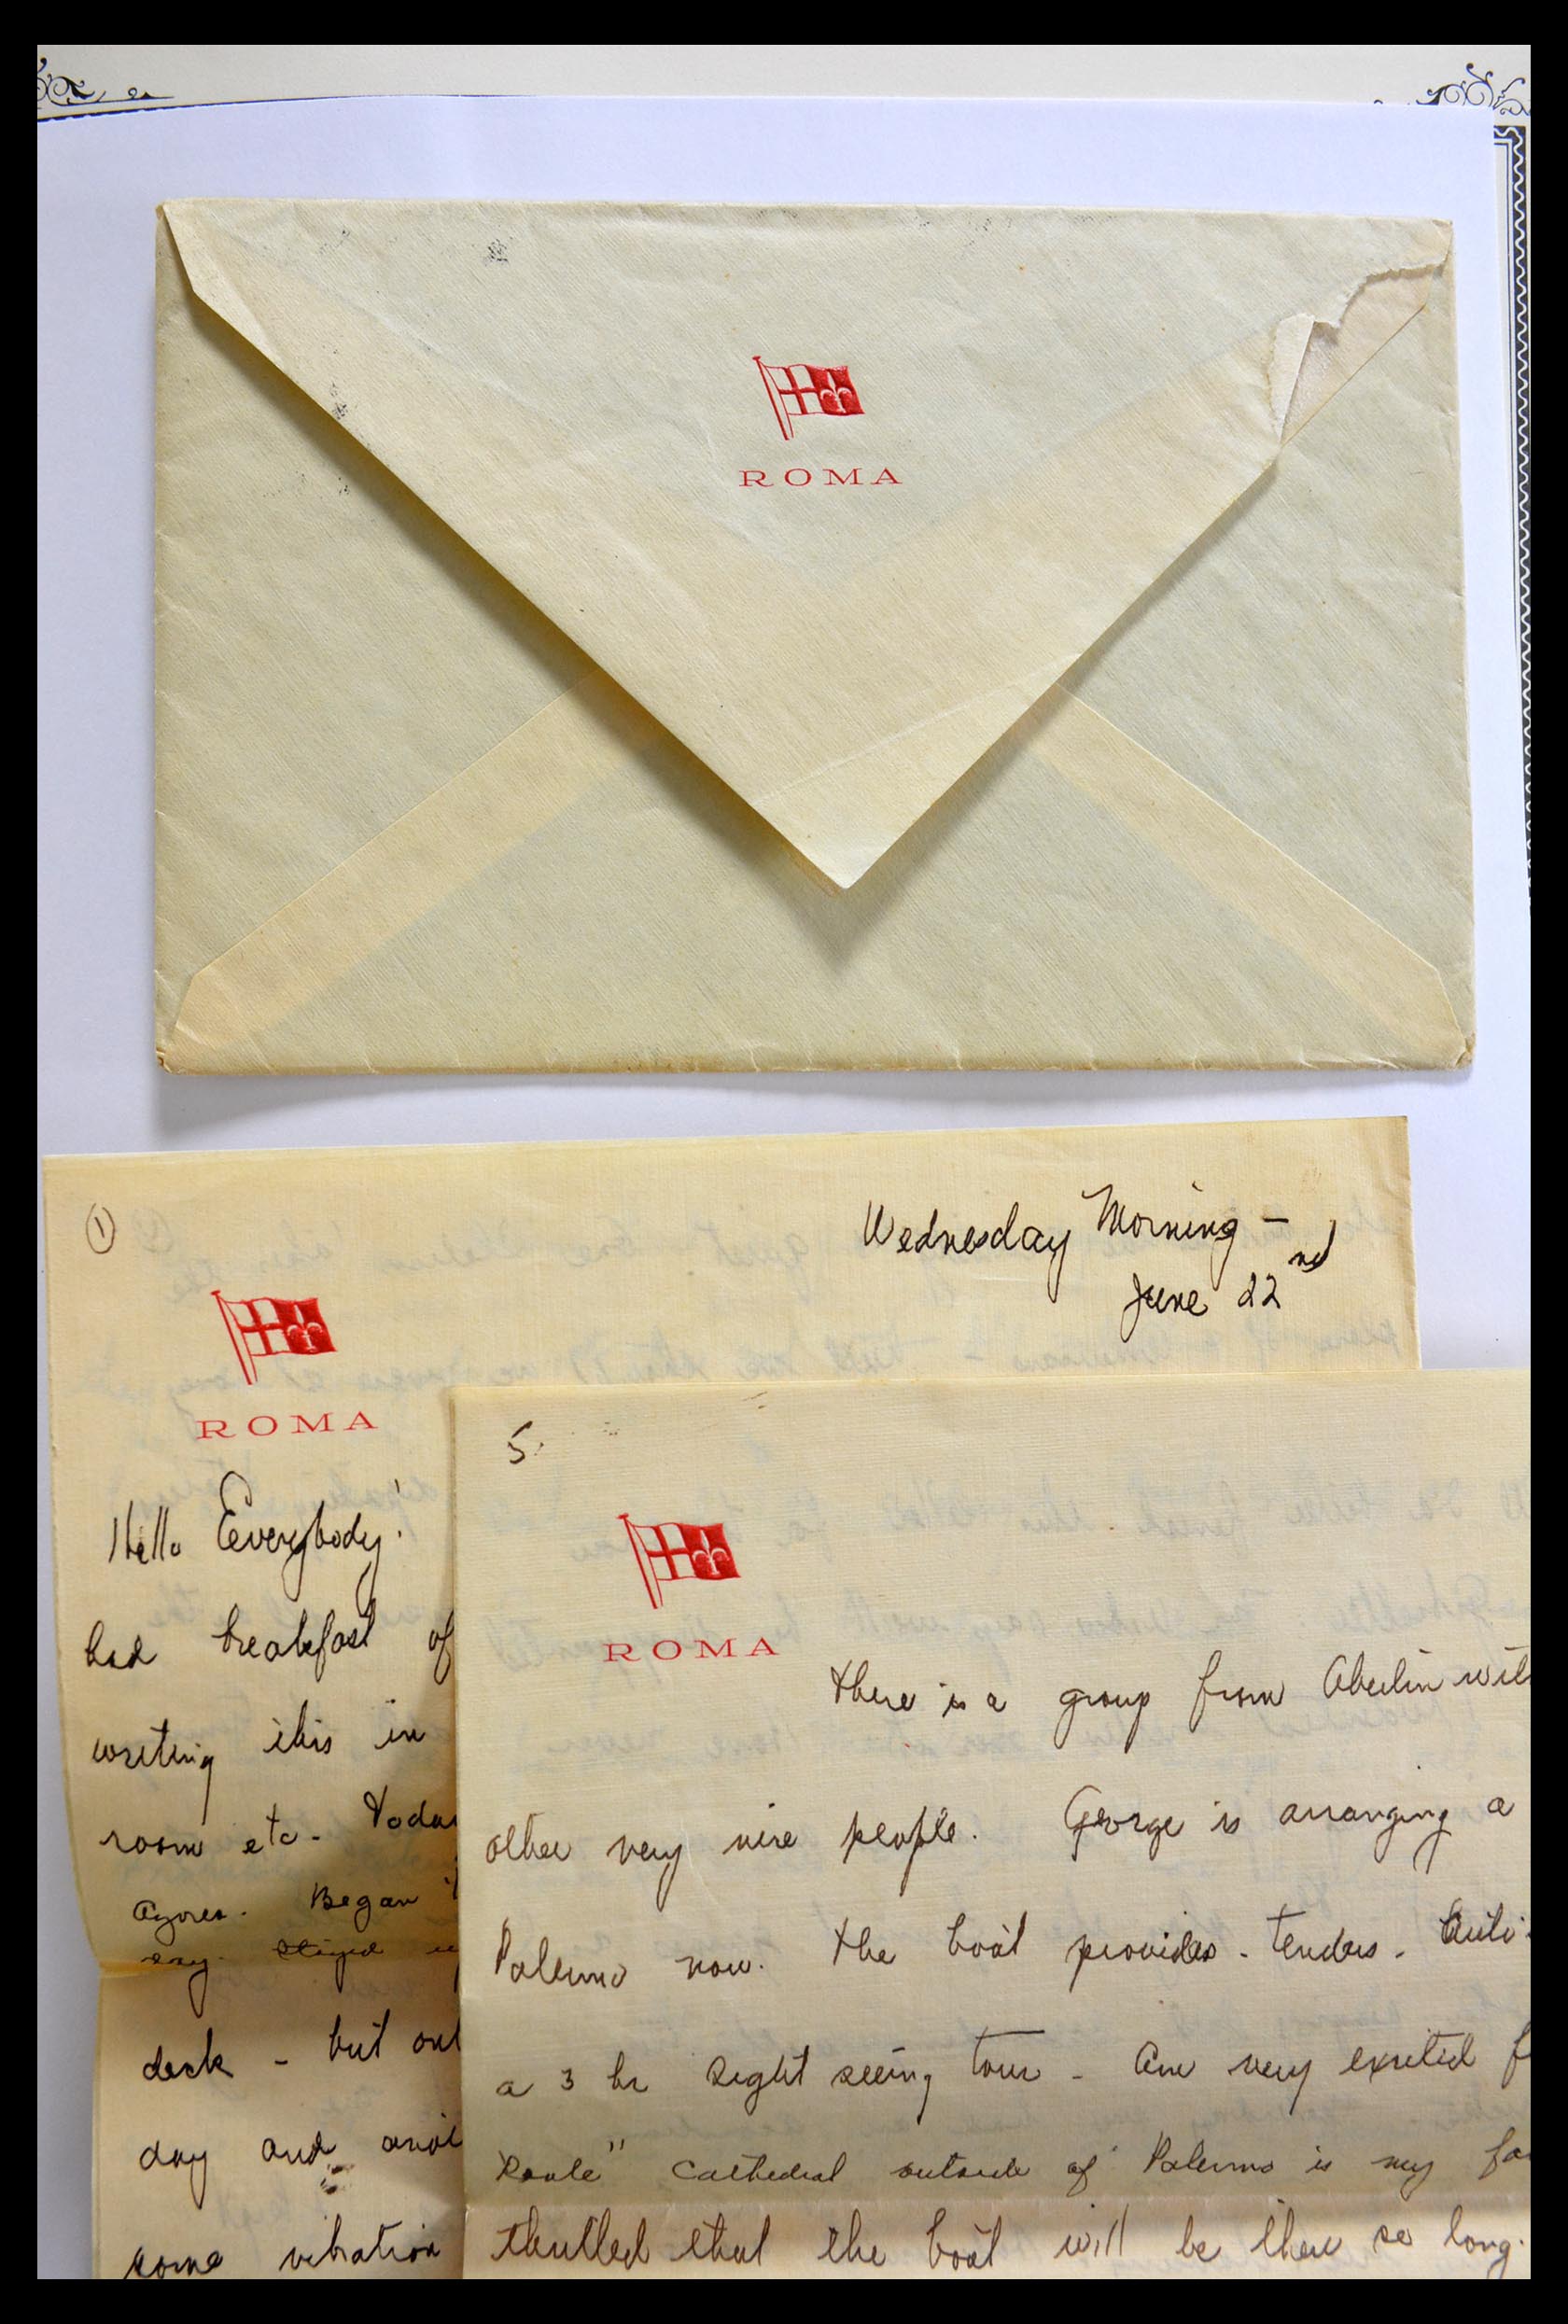 ROMA
①
Wednesday Morning -
June 22nd
ROMA
Hello Everybody!
had breakfast of
writing this in
room etc. Today
Azores. Began
say. Stayed
deck - but out
day and
some vibration
5.
ROMA
There is a group from Oberlin with
other very nice people. George is arranging a
Palermo now. The boat provides - tenders -
a 3 hr sight seeing tour - Am very excited f
Reale" Cathedral outside of Palermo is my fa
thrilled that the boat will be there so long.